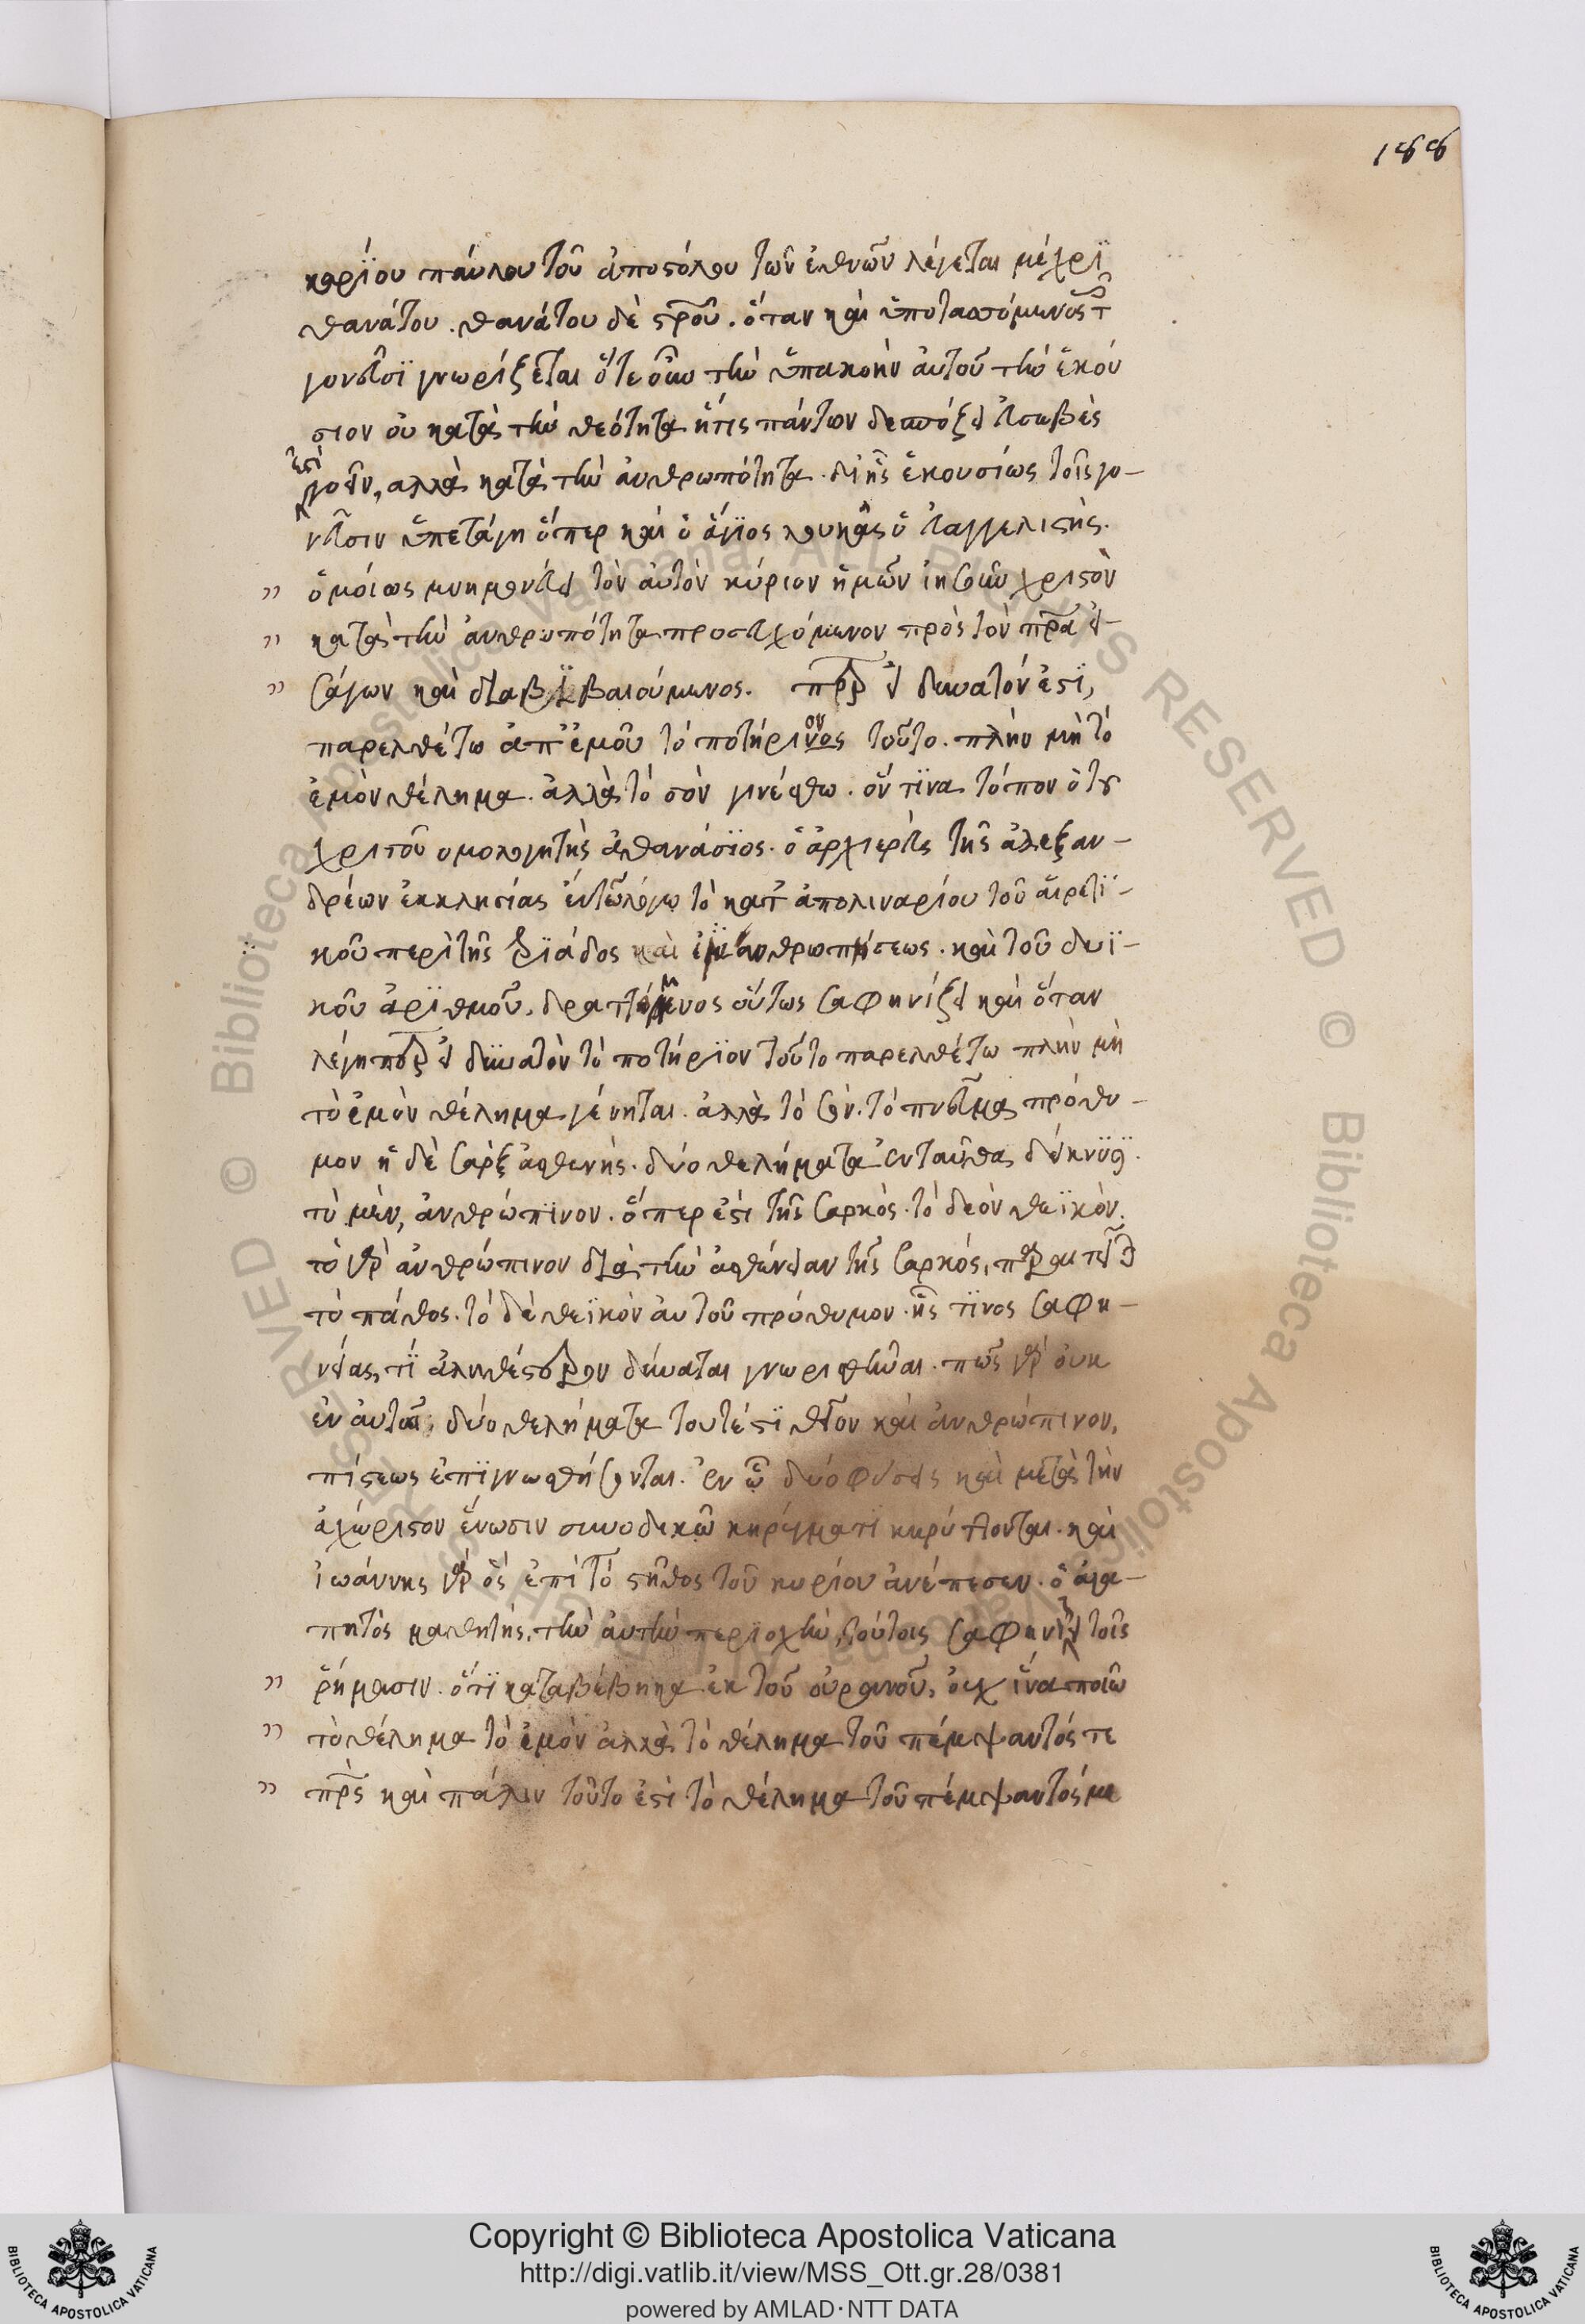 188
κυρίου παύλου τοῦ ἀποστόλου τῶν ἐθνῶν λέγεται μέχρϊ
θανάτου. θανάτου δὲ στροῦ. ὅταν καὶ ὑποτασσόμενος τ
γονεῦσϊ γνωρίζεται ὅτε οἷω τὴν ὑπακοὴν αὐτοῦ τὴν ἑκού
σιον οὐ κατὰ τὴν θεότητα ἥτις πάντων δεσπόζει εὐσεβὲς
ἐστὶ νοεῖν, αλλὰ κατὰ τὴν ἀνθρωπότητα. δι' ἧς ἑκουσίως τοῖς γο-
νεῦσιν ὑπετάγη ὅπερ καὶ ὁ ἅγϊος λουκᾶς ὁ εὐαγγελιστὴς.
ὁμοίως μνημονεύει τὸν αὐτὸν κύριον ἡμῶν ἰησοῦν χριστὸν
κατὰ τὴν ἀνθρωπότητα προσευχόμενον πρὸς τὸν πρα εἰ-
σάγων καὶ διαβεβαιούμενος. περ εἰ δυνατόν ἐστϊ,
παρελθέτω ἀπ' ἐμοῦ τὸ ποτήριον τοῦτο. πλὴν μὴ τὸ
ἐμὸν θέλημα. ἀλλὰ τὸ σὸν γινέσθω. ὅν τϊνα τόπον ὁ τοῦ
χριστοῦ ομολογητὴς ἀθανάσϊος. ὁ ἀρχιερεὺς τῆς ἀλεξαν-
δρέων ἐκκλησίας ἐν τῶ λόγω τὸ κατ ἀπολιναρίου τοῦ αἱρετϊ-
κοῦ περὶ τῆς τριάδος καὶ ἐνανθρωπήσεως. καὶ τοῦ δυϊ-
κοῦ ἀρϊθμοῦ. δραττόμενος οὕτως σαφηνίζει καὶ ὅταν
λέγη περ εἰ δυνατὸν τὸ ποτήρϊον τοῦτο παρελθέτω πλὴν μὴ
τὸ ἐμὸν θέλημα γένηται. ἀλλὰ τὸ σόν. τὸ πνεῦμα πρόθυ-
μον ἡ δὲ σὰρξ ἀσθενὴς. δύο θελήματα ἐνταῦθα δείκνϋσϊ.
τὸ μὲν, ἀνθρώπϊνον. ὅπερ ἐστὶ τῆς σαρκὸς. τὸ δεὸν θεϊκόν.
τὸ γὰρ ἀνθρώπινον διὰ τὴν ἀσθένειαν τῆς σαρκός, παραιτεῖται
τὸ πάθος. τὸ δὲ θεϊκὸν αυτοῦ πρόθυμον. ἧς τϊνος σαφη-
νείας, τϊ ἀληθέστερον δύναται γνωρισθῆναι. πῶς γὰρ οὐκ
ἐν αὐτῶ, δύο θελήματα τουτέστϊ θεῖον καὶ ἀνθρώπινον,
πίστεως ἐπϊγνωσθήσονται. ἐν ὧ δύο φύσεις καὶ μετὰ τὴν
ἀχώριστον ἕνωσιν συνοδικῶ κηρύγματϊ κηρύττονται. καὶ
ἰωάννης γὰρ ὅς ἐπὶ τὸ στῆθος τοῦ κυρίου ἀνέπεσεν. ὁ ἀγα-
πητὸς μαθητὴς, τὴν αὐτὴν περιοχὴν, τούτοις σαφηνίζει τοῖς
ῥήμασιν. ὅτϊ καταβέβηκα ἐκ τοῦ οὐρανοῦ, οὐχ ἵνα ποιῶ
τὸ θέλημα τὸ ἐμὸν ἀλλὰ τὸ θέλημα τοῦ πέμψαντός τε
πρς καὶ πάλιν τοῦτο ἐστὶ τὸ θέλημα τοῦ πέμψαντός με
Copyright © Biblioteca Apostolica Vaticana
http://digi.vatlib.it/view/MSS_Ott.gr.28/0381
powered by AMLAD·NTT DATA